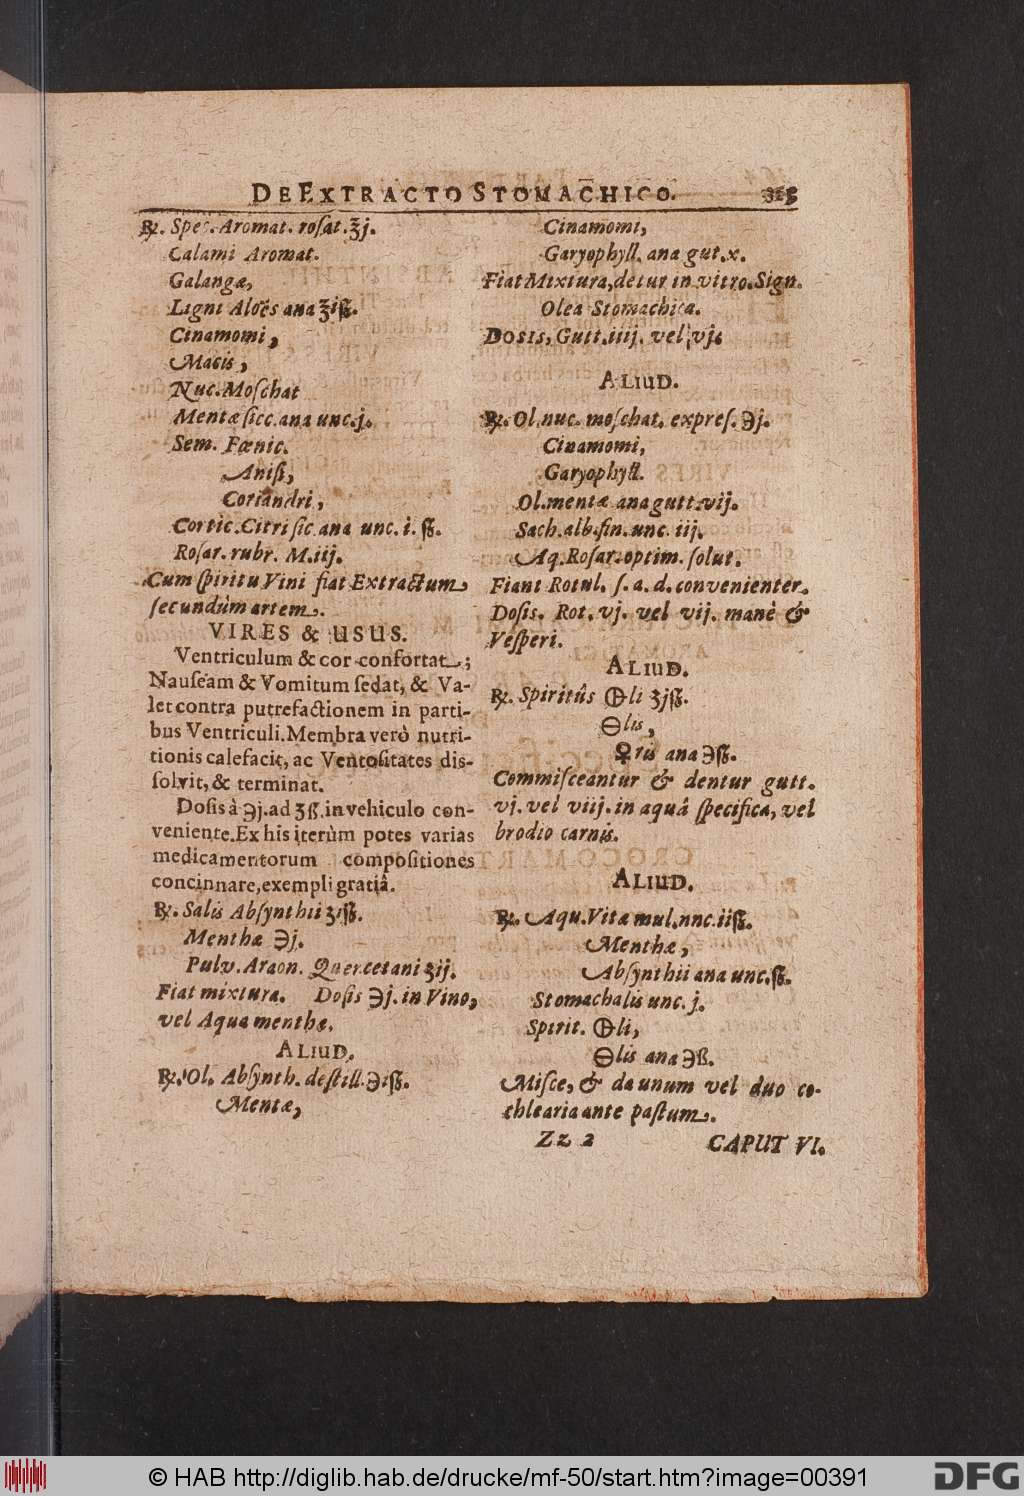 DE EXTRACTO STOMACHICO.
℞. Spec. Aromat. roſat. ʒj.
Calami Aromat.
Galangæ,
Ligni Aloës ana ʒiß.
Cinamomi,
Macis,
Nuc. Moſchat
Mentæ ſicc. ana unc. j.
Sem. Fœnic.
Aniſi,
Coriandri,
Cortic. Citri ſic. ana unc. i. ß.
Roſar. rubr. M. iij.
Cum ſpiritu Vini fiat Extractum
ſecundùm artem.
VIRES & USUS.
Ventriculum & cor confortat;
Nauſeam & Vomitum ſedat, & Va-
let contra putrefactionem in parti-
bus Ventriculi. Membra verò nutri-
tionis calefacit, ac Ventoſitates diſ-
ſolvit, & terminat.
Doſis à ℈j. ad ʒß. in vehiculo con-
veniente. Ex his iterùm potes varias
medicamentorum compoſitiones
concinnare, exempli gratiâ.
℞. Salis Abſynthii ʒiß.
Menthæ ℈j.
Pulv. Araon. Quercetani ʒij.
Fiat mixtura. Doſis ℈j. in Vino,
vel Aqua menthæ.
ALIUD.
℞. Ol. Abſynth. deſtill. ℈iß.
Mentæ,
Cinamomi,
Garyophyll. ana gut. x.
Fiat Mixtura, detur in vitro. Sign.
Olea Stomachica.
DOSIS, Gutt. iiij. vel vj.
ALIUD.
℞. Ol. nuc. moſchat. expreſ. ℈j.
Cinamomi,
Garyophyll.
Ol. mentæ ana gutt. vij.
Sach. alb. fin. unc. iij.
Aq. Roſar. optim. ſolut.
Fiant Rotul. ſ. a. d. convenienter.
Doſis. Rot. vj. vel vij. manè &
Veſperi.
ALIUD.
℞. Spiritûs 🜕li ʒjß.
🜔lis,
♀ris ana ℈ß.
Commiſceantur & dentur gutt.
vj. vel viij. in aquâ ſpecifica, vel
brodio carnis.
ALIUD.
℞. Aqu. Vitæ mul. unc. iiß.
Menthæ,
Abſynthii ana unc. ß.
Stomachalis unc. j.
Spirit. 🜕li,
🜔lis ana ℈ß.
Miſce, & da unum vel duo co-
chlearia ante paſtum.
Zz 2 CAPUT VI.
© HAB http://diglib.hab.de/drucke/mf-50/start.htm?image=00391
DFG